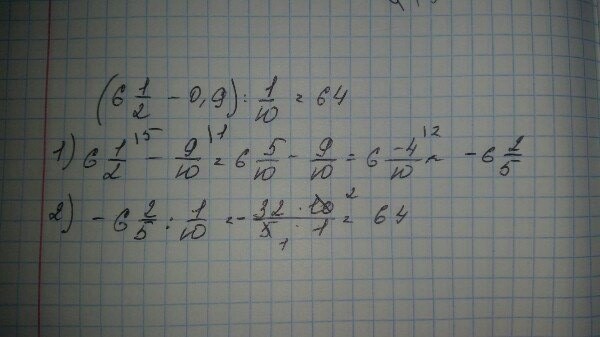 (6 1/2 - 0,9) : 1/10 = 64
1) 6 1/2 \5 - 9/10 \1 = 6 5/10 - 9/10 = 6 -4/10 \2 = -6 2/5
2) -6 2/5 : 1/10 = - 32 · 10 2 / 5 1 · 1 = 64